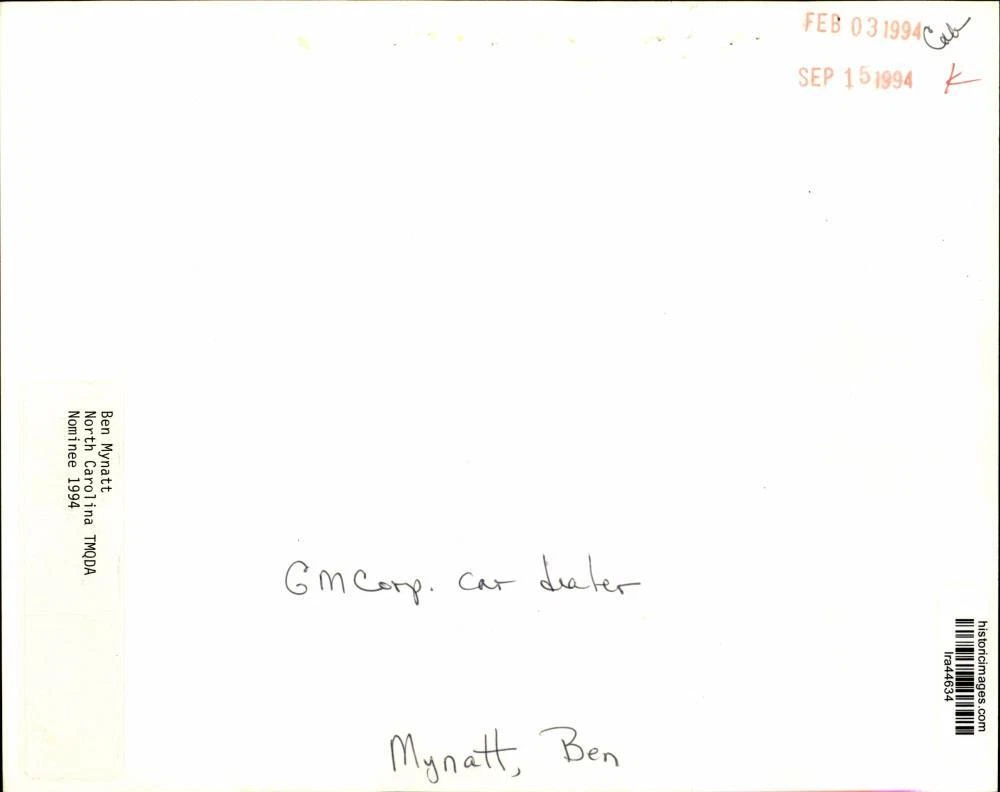 FEB 03 1994 Cab
SEP 15 1994 K
Ben Mynatt
North Carolina TMQDA
Nominee 1994
GM Corp. car dealer
historicimages.com
lra44634
Mynatt, Ben